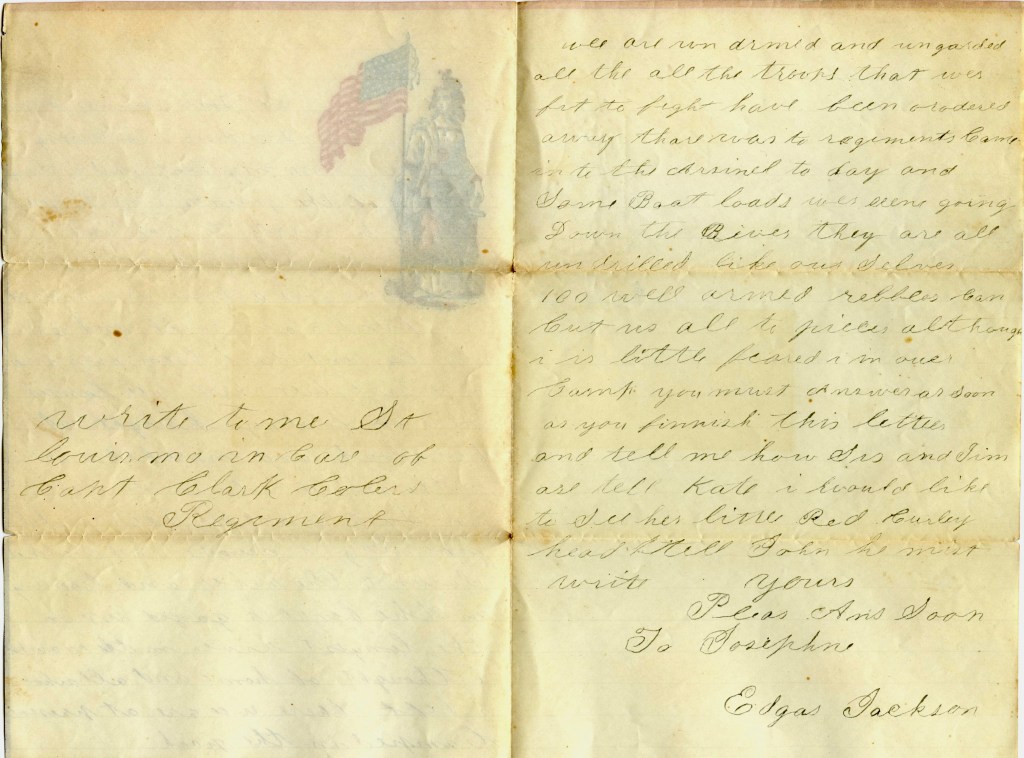 write to me St
louis mo in Care of
Capt Clark Colers
Regiment
wee are un armed and ungarded
all the all the troops that wer
fit to fight have been orodered
away thare was to regiments Came
in to the Arsinel to day and
Some Boat loads wer seene going
Down the River they are all
undrilled like our Selves
100 well armed rebbles Can
Cut us all to pieces although
i is little feared i in our
Camp you must Answer as Soon
as you finnish this letter
and tell me how Sis and Jim
are tell Kate i would like
to See her little Red Curley
head & tell John he must
write yours
Pleas Ans Soon
To Josephne
Edgar Jackson